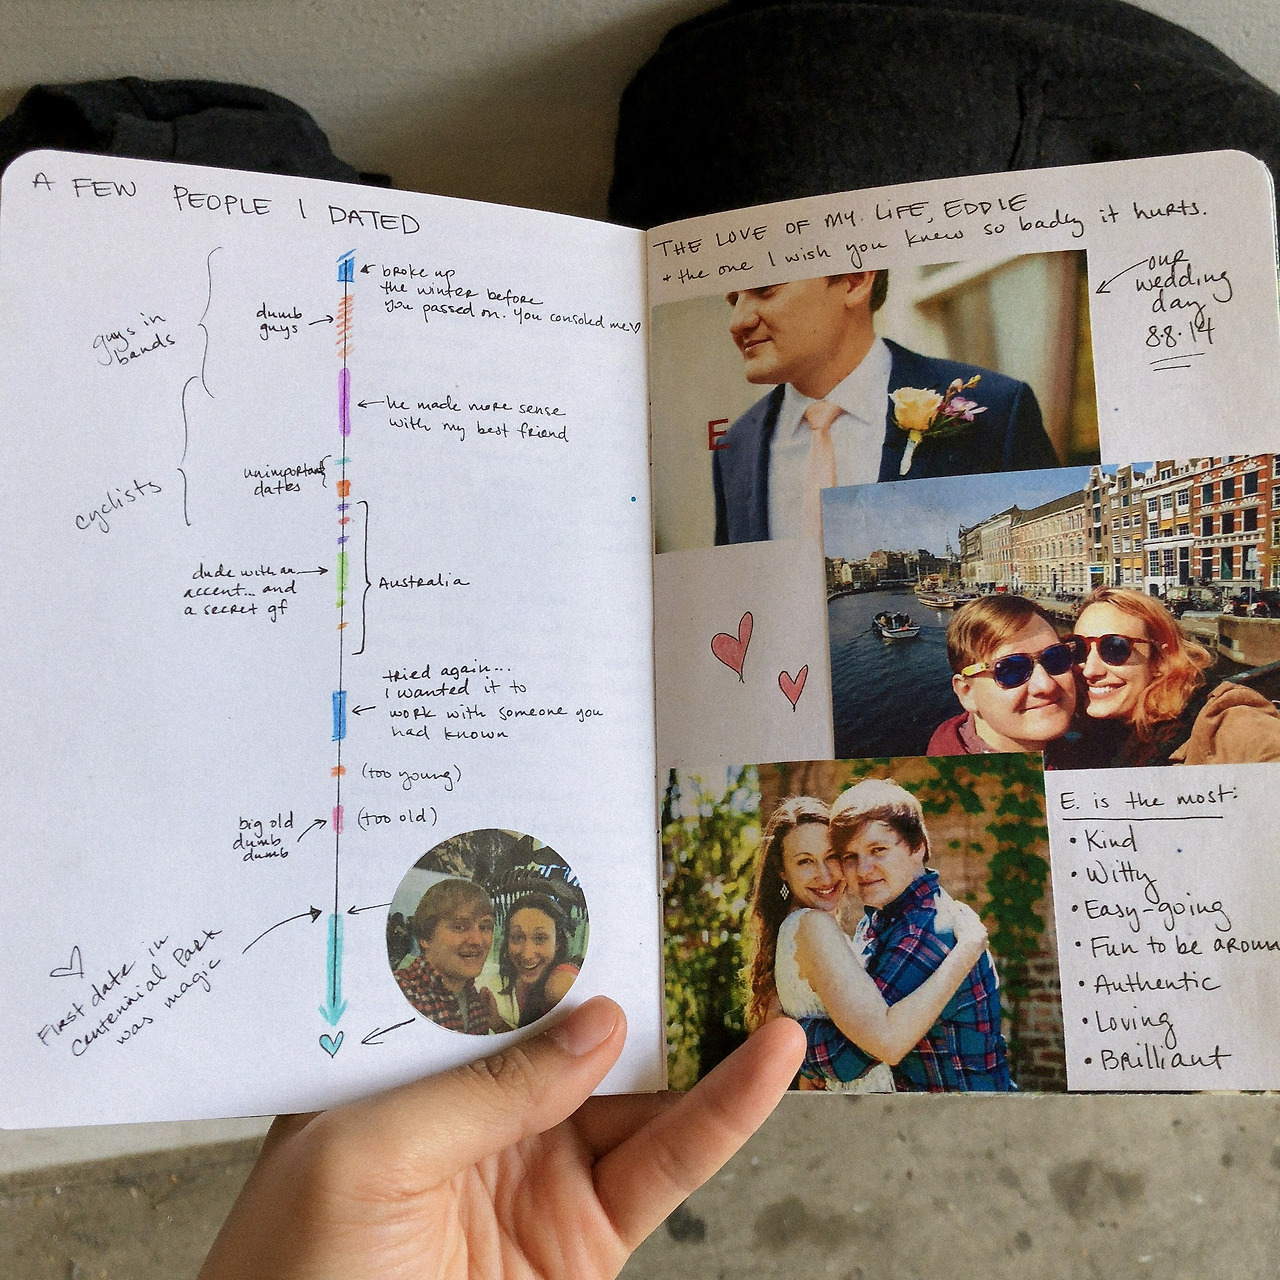 A FEW PEOPLE I DATED
broke up
the winter before
you passed on. You consoled me
dumb
guys
guys in
bands
he made more sense
with my best friend
unimportant
dates
cyclists
dude with an
accent... and
a secret gf
Australia
tried again...
I wanted it to
work with someone you
had known
(too young)
(too old)
big old
dumb
dumb
First date in
Centennial Park
was magic
THE LOVE OF MY LIFE, EDDIE
* the one I wish you knew so badly it hurts.
our
wedding
day
8.8.14
E
E. is the most:
• Kind
• Witty
• Easy-going
• Fun to be aroun
• Authentic
• Loving
• Brilliant